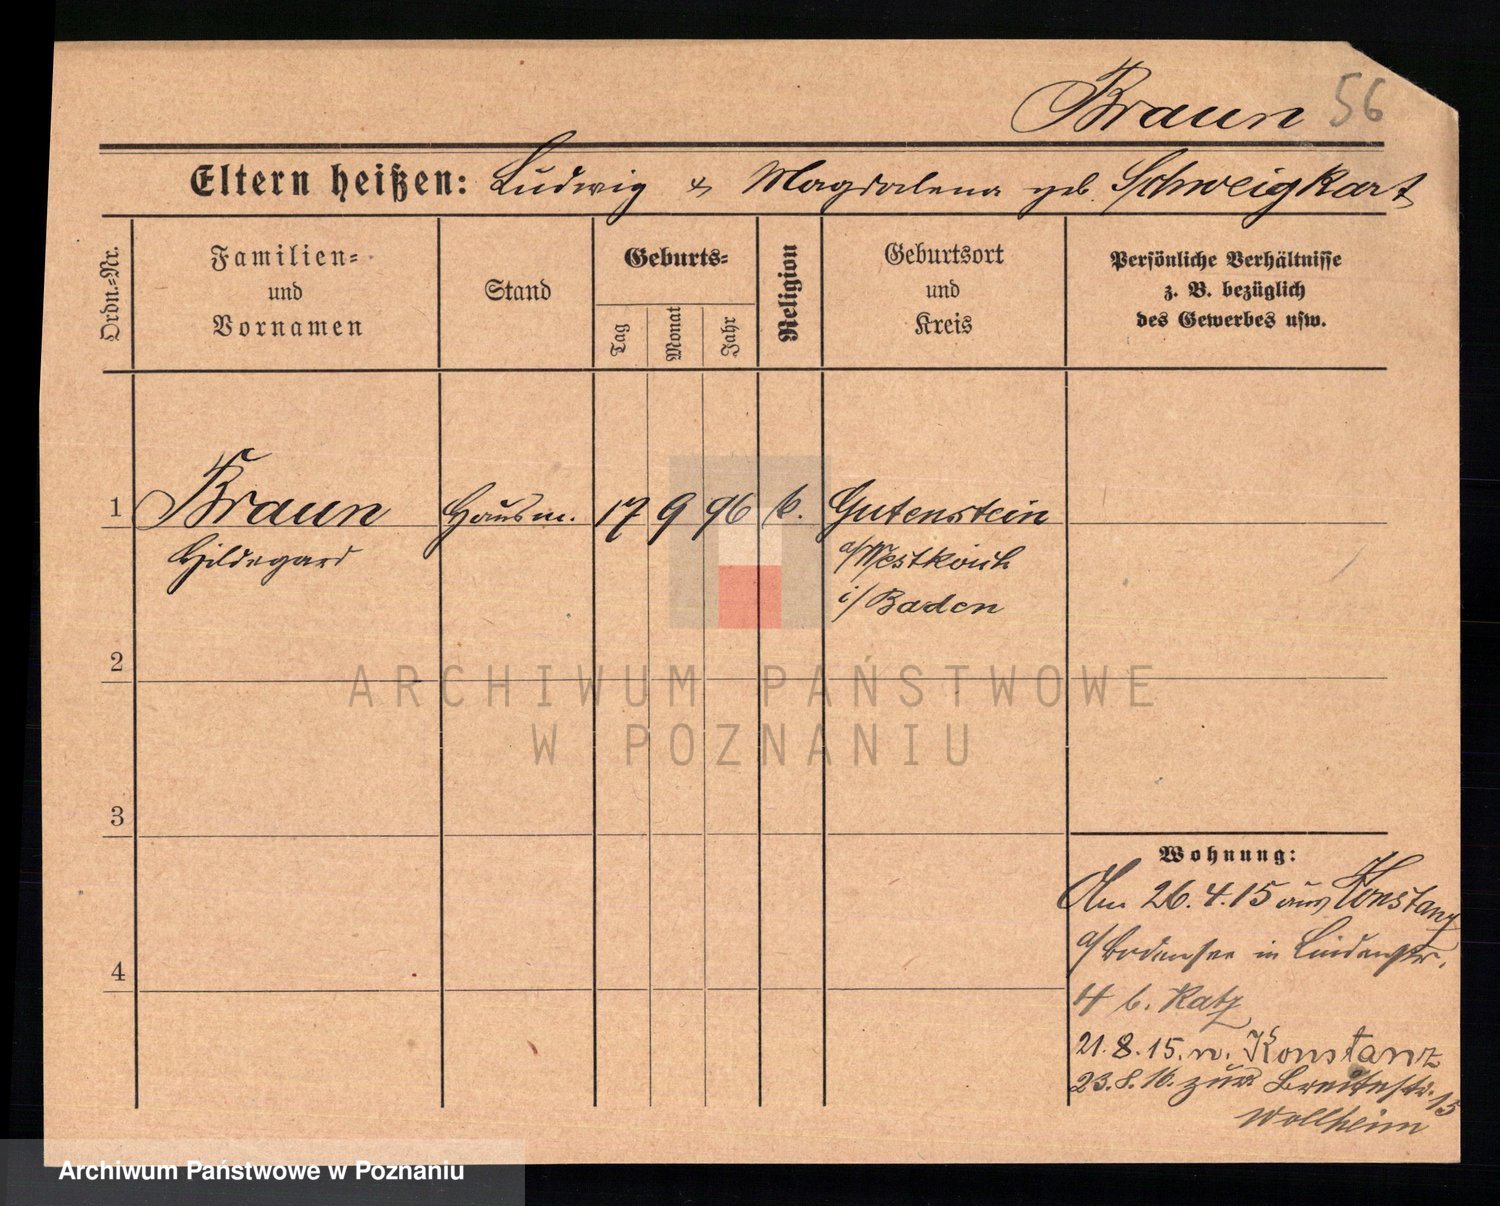 Braun 56
Eltern heißen: Ludwig & Magdalena geb. Schweigkart
Ordn.-Nr.
Familien-
und
Vornamen
Stand
Geburts-
Tag
Monat
Jahr
Religion
Geburtsort
und
Kreis
Persönliche Verhältnisse
z. B. bezüglich
des Gewerbes usw.
1 Braun Hausm. 17 9 96 k. Gutenstein
Hildegard a/Mestkirch
i/Baden
2
ARCHIWUM PAŃSTWOWE
W POZNANIU
3
Wohnung:
Am 26.4.15 aus Konstanz
a/Bodensee in Lindenstr.
4 b. Katz
4
21.8.15. n. Konstanz
23.8.16. zur Breitestr. 15
Wollheim
Archiwum Państwowe w Poznaniu